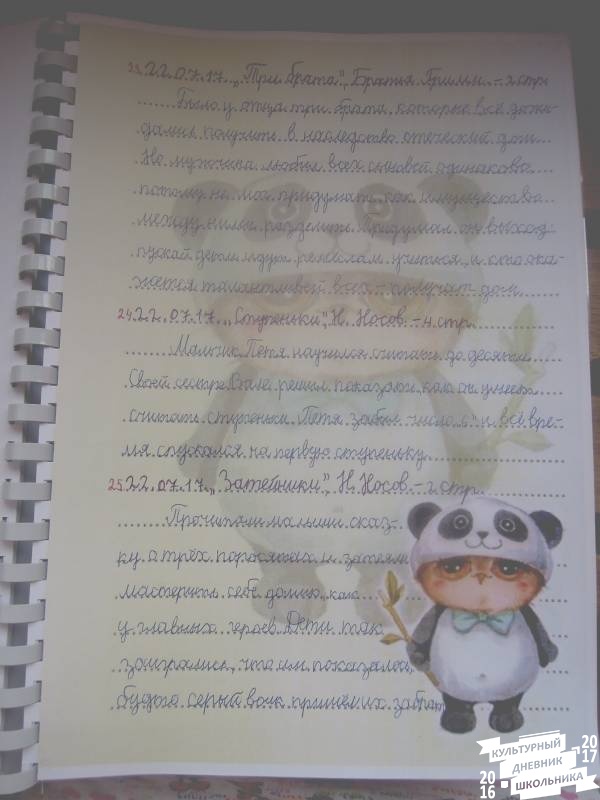 23. 22.07.17. „Три брата”, Братья Гримм. – 2 стр.
Было у отца три брата, которые всё дожи-
дались получить в наследство отеческий дом.
Но мужчина любил всех сыновей одинаково,
потому не мог придумать, как имущество
между ними разделить. Придумал он выход:
пускай дети идут ремёслам учиться, и кто ока-
жется талантливей всех – получит дом.
24. 22.07.17. „Ступеньки”, Н. Носов. – 4 стр.
Мальчик Петя научился считать до десяти.
Своей сестре решил показать, как он умеет
считать ступеньки. Петя забыл число „6” и всё вре-
мя спускался на первую ступеньку.
25. 22.07.17. „Затейники”, Н. Носов. – 2 стр.
Прочитали малыши сказ-
ку о трёх поросятах и затеяли
мастерить себе домик, как
у главных героев. Дети так
заигрались, что им показалось,
будто серый волк пришёл их забрать
КУЛЬТУРНЫЙ
ДНЕВНИК
ШКОЛЬНИКА
2016
2017